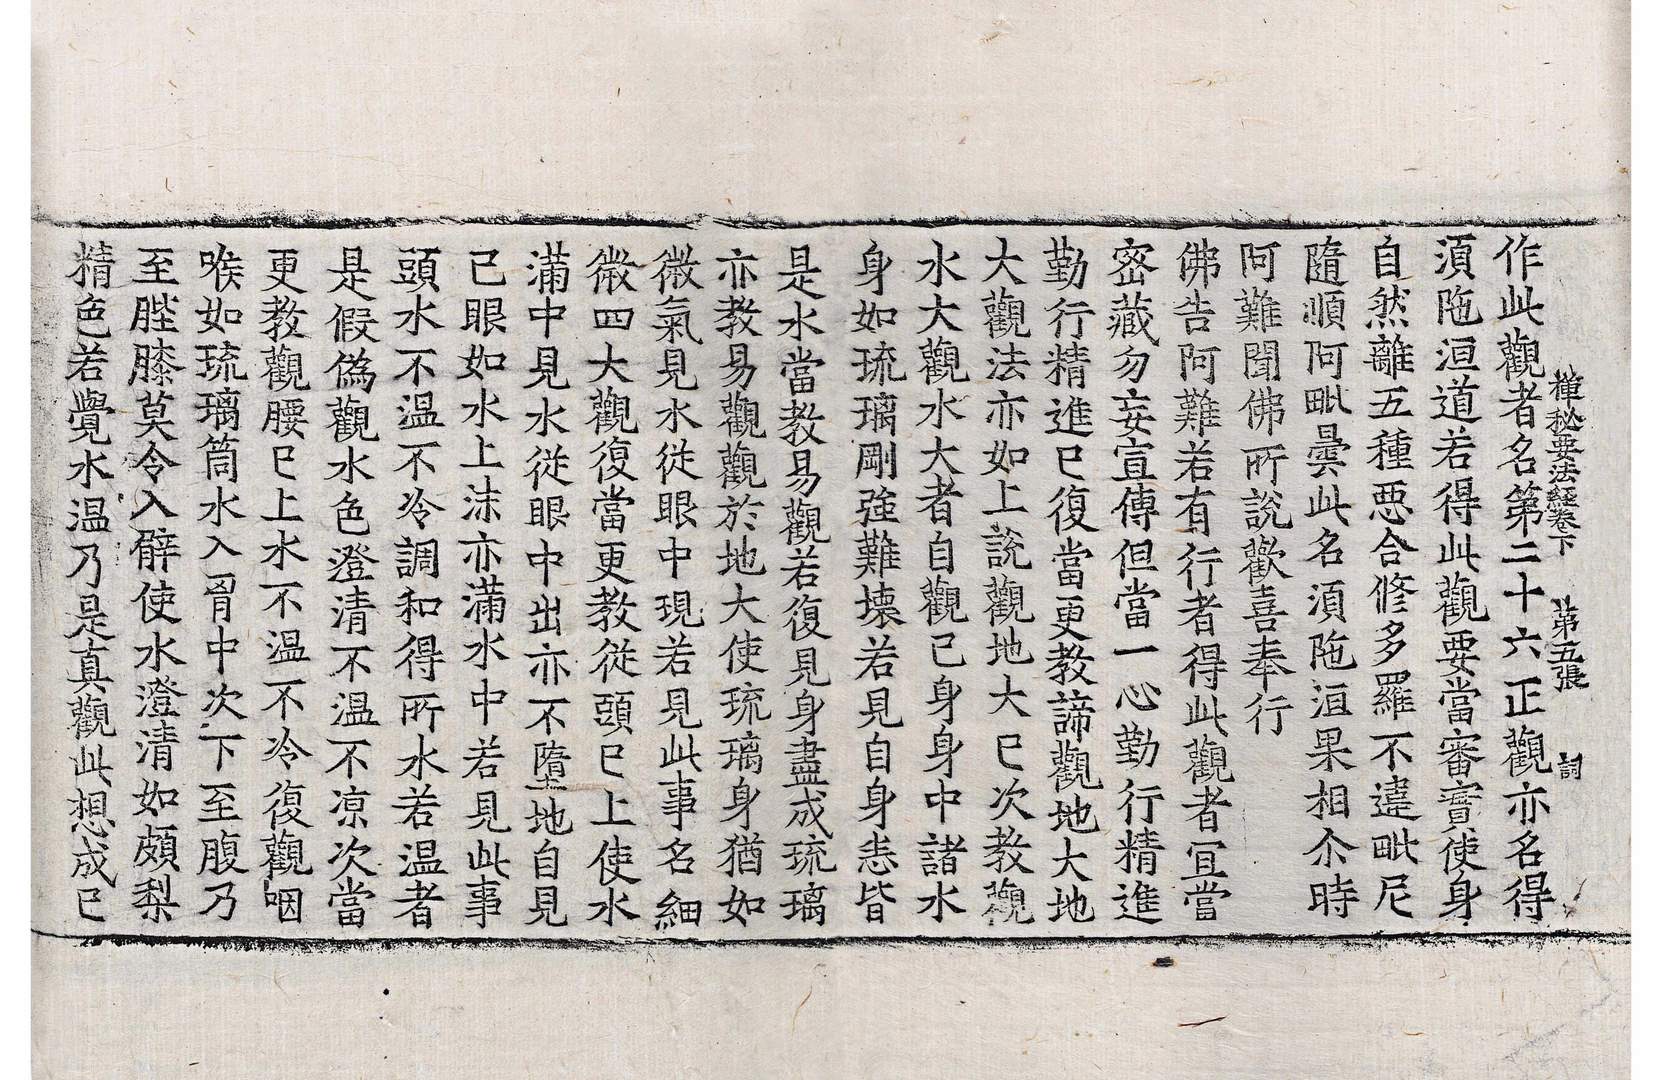 種秘要法經卷下 第五張 詞
作此觀者名第二十六正觀亦名得
湏陁洹道若得此觀要當審實使身
自然離五種惡合修多羅不違毗尼
隨順阿毗曇此名湏陁洹果相尒時
阿難聞佛所說歡喜奉行
佛告阿難若有行者得此觀者冝當
密藏勿妄宣傳但當一心勤行精進
勤行精進已復當更教諦觀地大地
大觀法亦如上說觀地大已次教觀
水大觀水大者自觀己身身中諸水
身如琉璃剛強難壞若見自身恚皆
是水當教易觀若復見身盡成琉璃
亦教易觀觀於地大使琉璃身猶如
微氣見水從眼中現若見此事名細
微四大觀復當更教從頭已上使水
滿中見水從眼中出亦不墮地自見
己眼如水上沫亦滿水中若見此事
頭水不温不冷調和得所水若温者
是假偽觀水色澄清不温不凉次當
更教觀腰已上水不温不冷復觀咽
喉如琉璃筒水入胷中次下至腹乃
至䏶膝莫令入臂使水澄清如頗梨
精色若覺水温乃是真觀此想成已